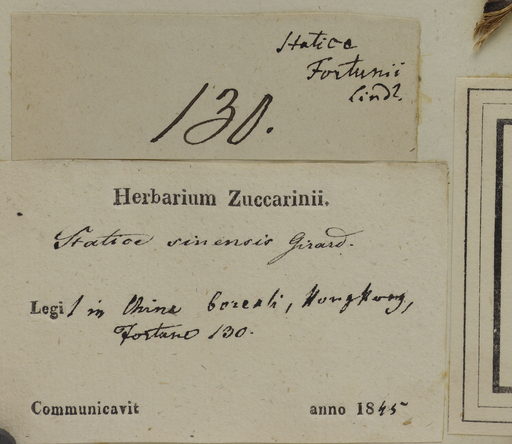 Statice
Fortunii
Lindl.
130.
Herbarium Zuccarinii.
Statice sinensis Girard.
Legit in China boreali, HongKong,
Fortune 130.
Communicavit anno 1845